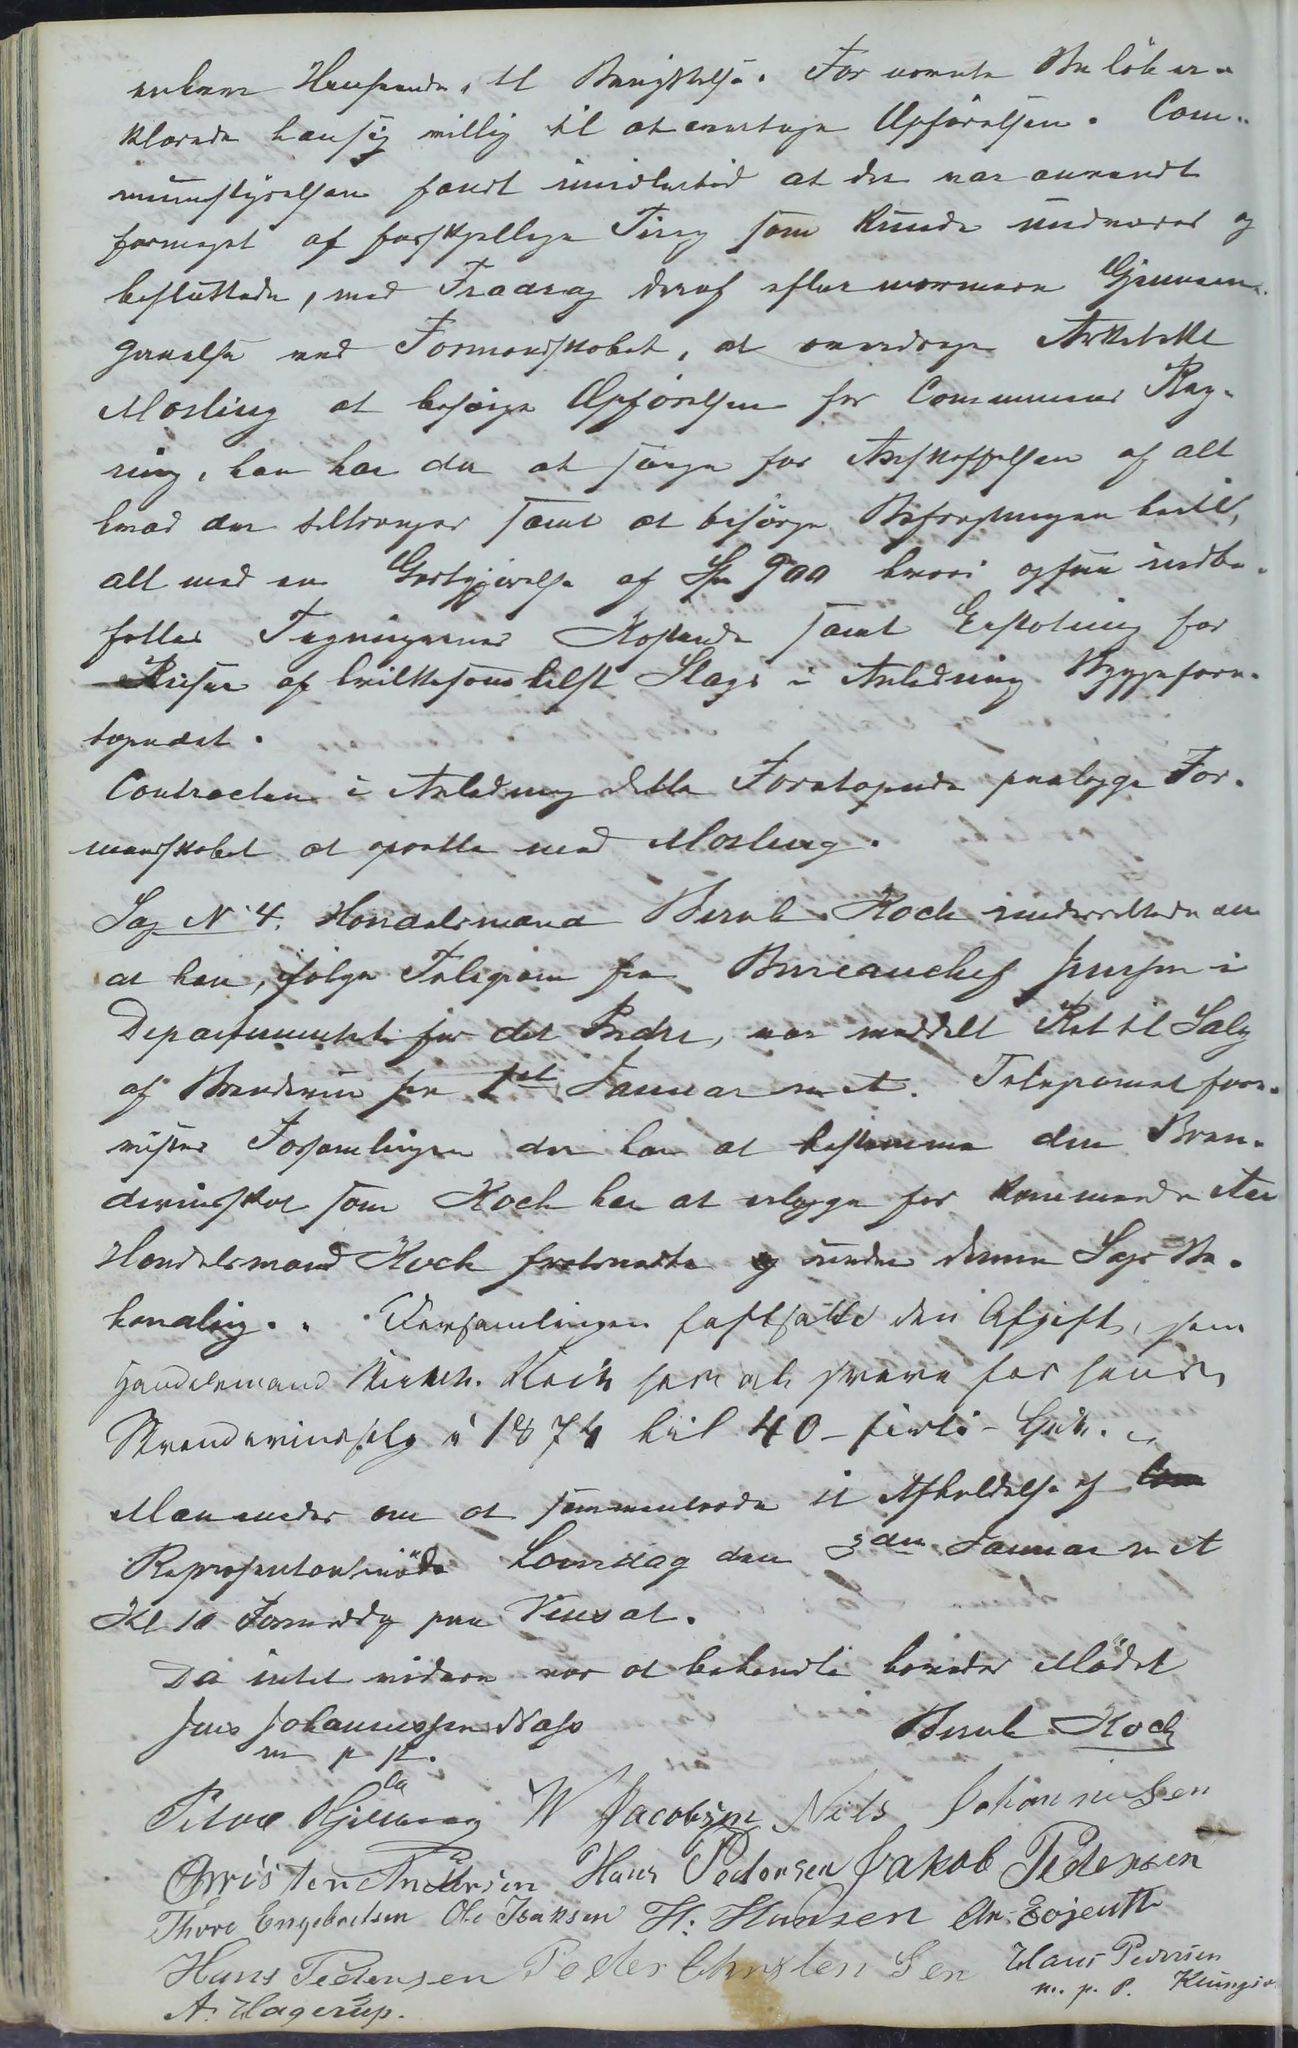 enhver Henseende, til Benyttelse. For nevnte Beløb er-
klærede han sig villig til at overtage Opførelsen. Com-
munestyrelsen fandt imidlertid at der var anvendt
formeget af forskjellige Ting som kunde undværes og
besluttede, med Fradrag deraf efter nærmere Gjennem-
gaaelse ved Formandskabet, at overdrage Arkitekt
Mosling at besørge Opførelsen for Communens Reg-
ning, han har da at sørge for Anskaffelsen af alt
hvad der tiltrænges samt at besørge Befragtningen hertil,
alt med en Godtgjørelse af Spd 900 hvori ogsaa indbe-
fattes Tegningernes Kostende samt Erstatning for
Reiser af hvilkesomhelst Slags i Anledning Byggefore-
tagendet.
Contracten i Anledning dette Foretagende paalægges For-
mandskabet at oprette med Mosling.
Sag N 4. Handelsmand Bernh. Koch underrettede om
at han, ifølge Telegram fra Bureauchef Jensen i
Departementet for det Indre, var meddelt Ret til Salg
af Brændeviin fra 1st Januar n. A. Telegramet fore-
vistes Forsamlingen der har at bestemme den Bræn-
deviinsskat som Koch har at erlægge for kommende Aar
Handelsmand Koch fratraadte under denne Sags Be-
handling. Forsamlingen fastsatte den Afgift, som
Handelsmand Bernh. Koch har at svare for hans
Brændeviinssalg i 1874 til 40 - firti - Spd.
Man enedes om at sammentræde til Afholdelse af
Repræsentantmøde Lørdag den 3die Januar n. A
Kl 10 Formiddag paa
Da intet videre var at behandle hævedes Mødet
Jens Johannessen Næss Bernh Koch
m p P.
Peder W Jacobsen Nils Johannesen
Christen Andersen Hans Pedersen Jakob Pedersen
Thore Engebretsen Ole Isaksen H. Hansen
Hans Pedersen Peder Christensen Hans Pedersen
m. p. P.
A. Hagerup.